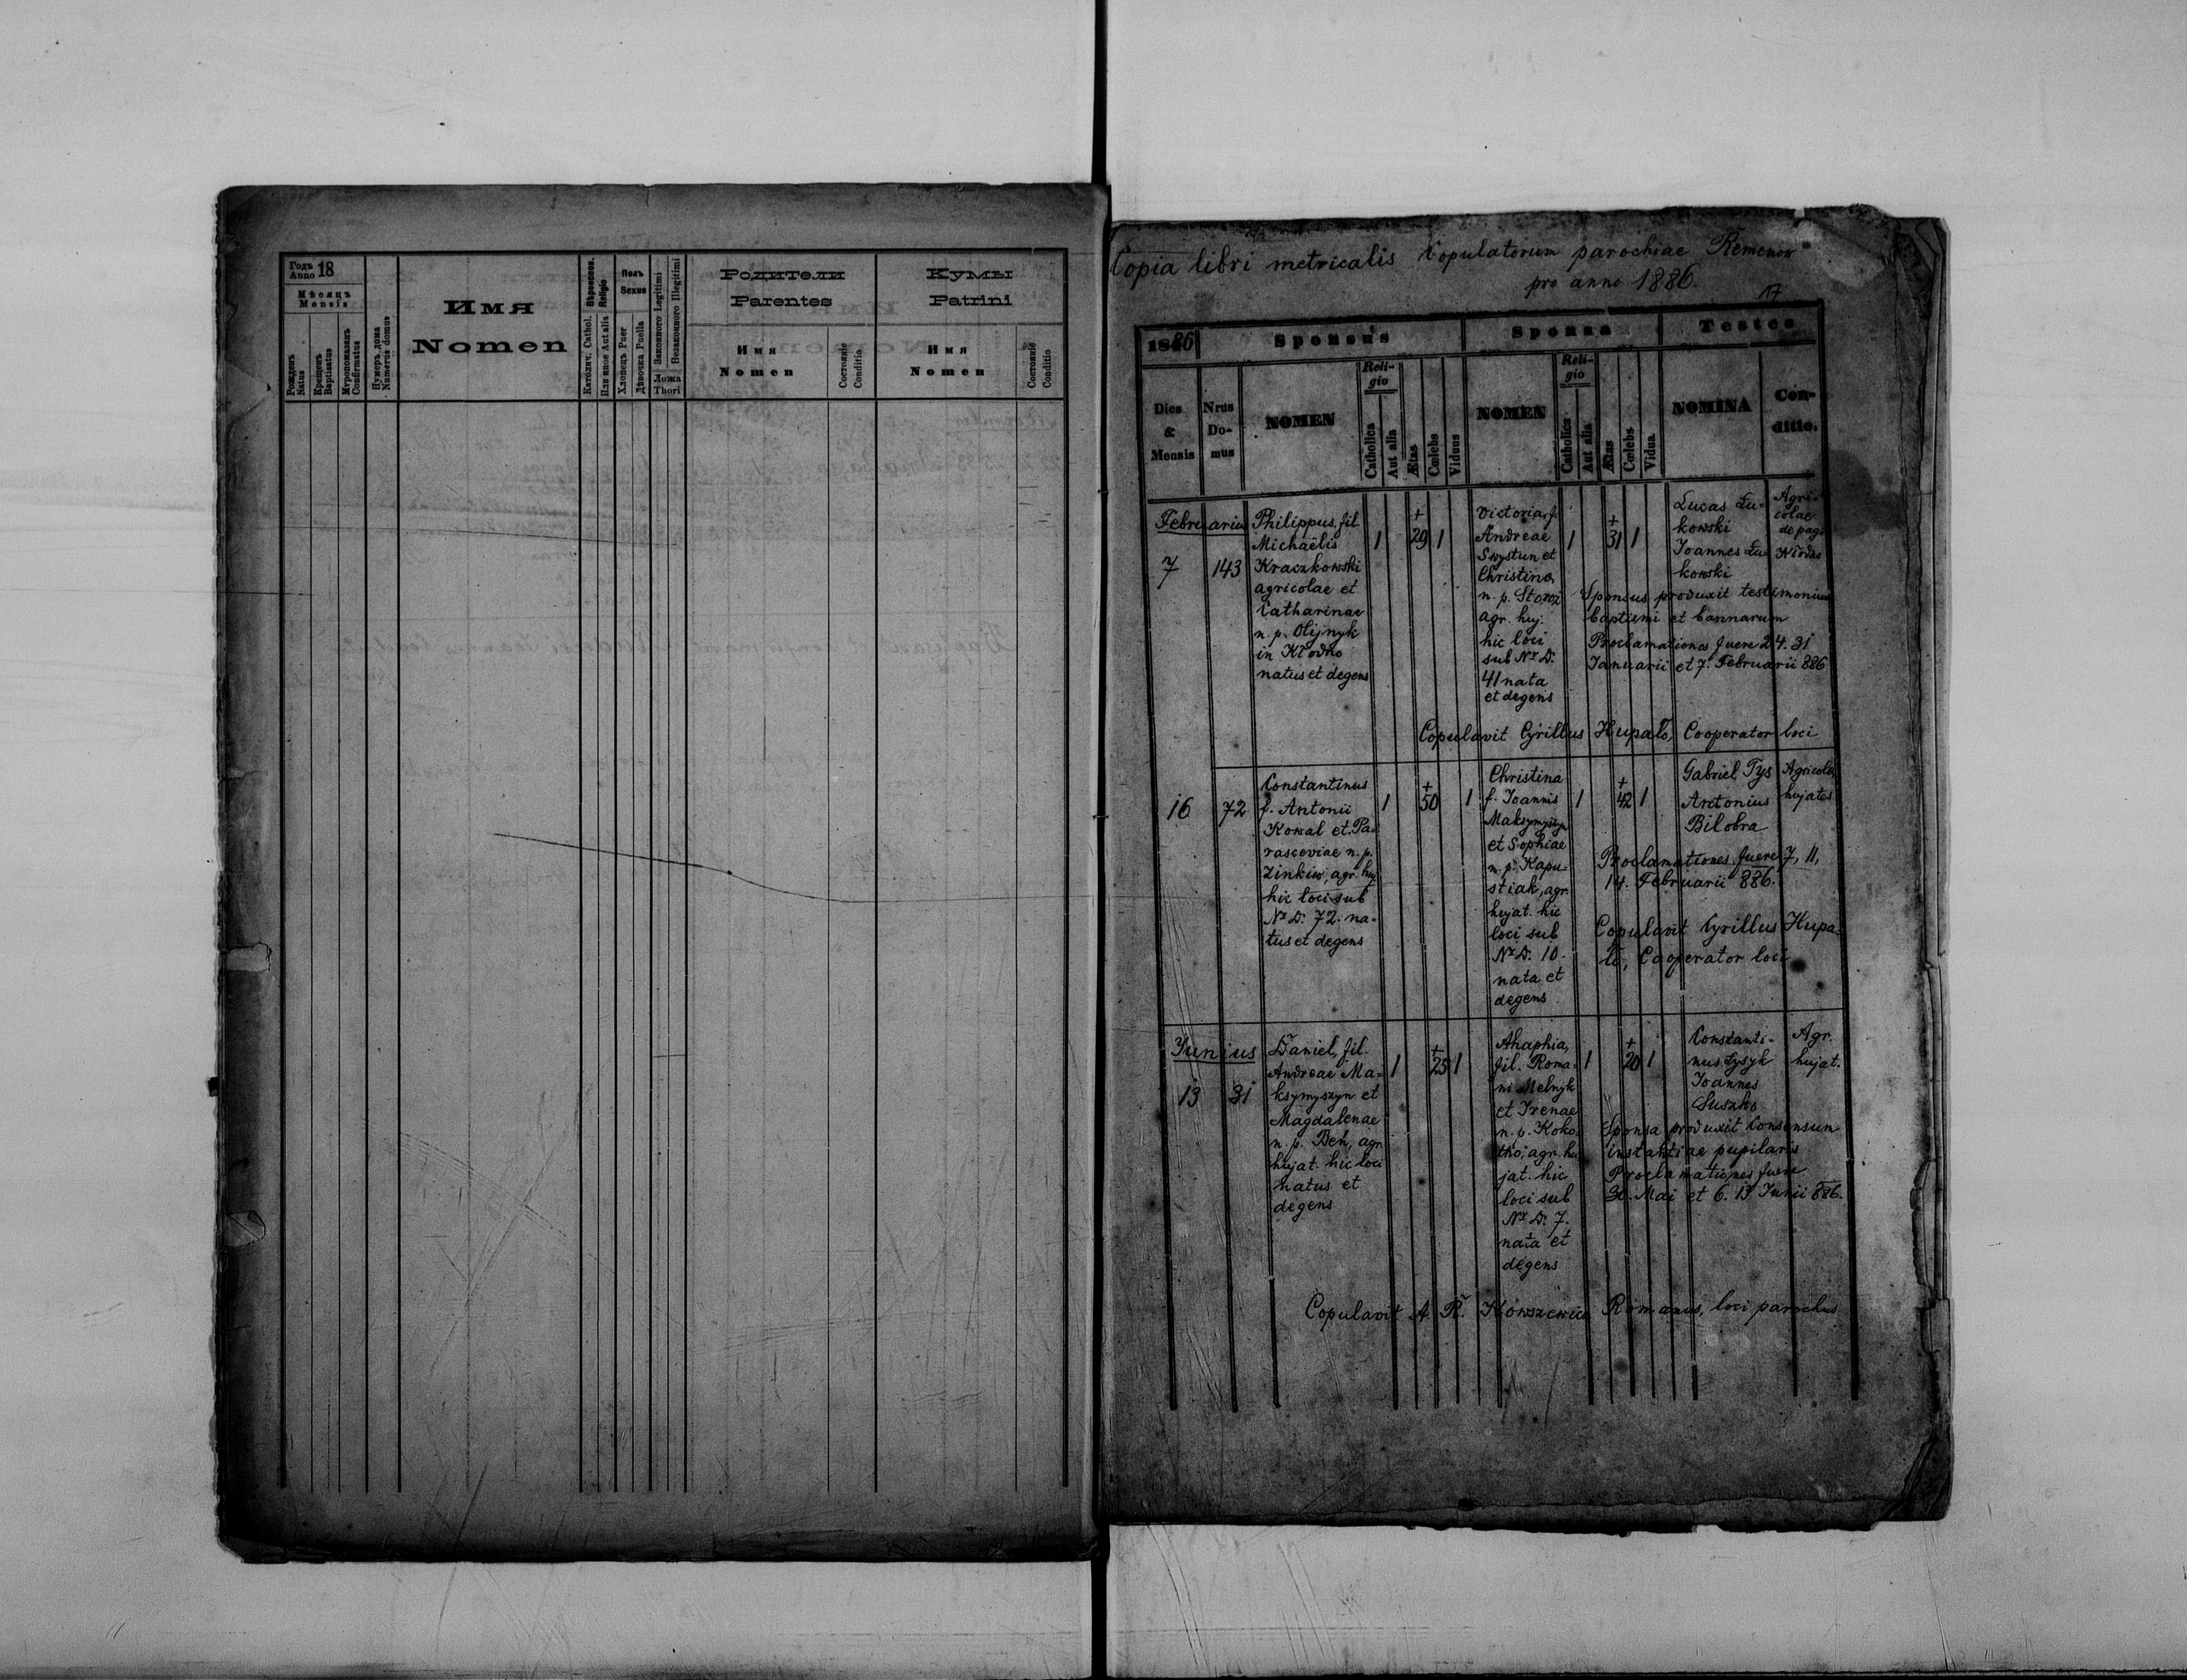 Годъ
Anno 18
Мѣсяцъ
Mensis
Рожденъ
Natus
Крещенъ
Baptisatus
Мѵропомазанъ
Confirmatus
Нумеръ дома
Numerus domus
Имя
Nomen
Вѣроиспов.
Religio
Католич. Cathol.
Или иное Aut alia
Полъ
Sexus
Хлопецъ Puer
Дѣвочка Puella
Законного Legitimi
Незаконного Illegitimi
Ложа
Thori
Родители
Parentes
Имя
Nomen
Состояніе
Conditio
Кумы
Patrini
Имя
Nomen
Состояніе
Conditio
Copia libri metricalis Copulatorum parochiae Remenow
pro anno 1886.
17
1886
Sponsus
Sponsa
Testes
Dies
&
Mensis
Nrus
Do-
mus
NOMEN
Reli-
gio
Catholica
Aut alia
Ætas
Cœlebs
Viduus
NOMEN
Reli-
gio
Catholica
Aut alia
Ætas
Cœlebs
Vidua.
NOMINA
Con-
ditio.
Februarius
7
143
Philippus, fil.
Michaëlis
Kraczkowski
agricolae et
Catharinae
n. p. Olijnyk
in Kłodno
natus et degens
1
+
29
1
Victoria, f.
Andreae
Swystun et
Christina,
n. p. Storoż
agr. huj.
hic loci
sub Nr D.
41 nata
et degens
1
+
31
1
Lucas Łu-
kowski
Joannes Łu-
kowski
Agri-
colae
de pag.
Kłodno
Sponsus produxit testimonium
baptismi et bannarum
Proclamationes fuere 24. 31
Januarii et 7. Februarii 886
Copulavit Cyrillus Hupało, Cooperator loci
16
72
Constantinus
f. Antonii
Kowal et Pa-
rasceviae n. p.
Zinkiw, agr. huj.
hic loci sub
Nr D. 72. na-
tus et degens
1
+
50
1
Christina
f. Joannis
Maksymyszyn
et Sophiae
n. p. Kapu-
stiak, agr.
hujat. hic
loci sub
Nr D. 10.
nata et
degens
1
+
42
1
Gabriel Tys
Antonius
Bilobra
Agricolae
hujates
Proclamationes fuere 7, 11,
14. Februarii 886.
Copulavit Cyrillus Hupa-
ło, Cooperator loci
Junius
13
31
Daniel, fil.
Andreae Ma-
ksymyszyn et
Magdalenae
n. p. Beh, agr.
hujat. hic loci
natus et
degens
1
+
25
1
Ahaphia,
fil. Roma-
ni Melnyk
et Irenae
n. p. Koko-
tko, agr. hu-
jat. hic
loci sub
Nr D. 7.
nata et
degens
1
+
20
1
Constanti-
nus Łysyk
Joannes
Suszko
Agr.
hujat.
Sponsa produxit Consensum
instantiae pupilaris
Proclamationes fuere
30. Mai et 6. 13 Junii 886.
Copulavit A. R. Kowszewicz Romanus, loci parochus